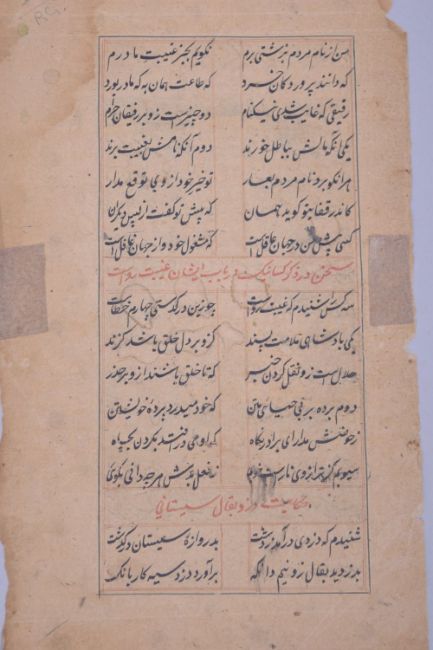 RG.
من ار نام مردم بزشتی برم نکویم بجز غیبت مادرم
که دانند پروردکان خرد که طاعت همان به که مادر برد
رفیقی که غایب شد ای نیکنام دو چیزست زو بر رفیقان حرام
یکی آنکه مالش بباطل خورند دوم آنکه نامش بغیبت برند
هر آنکو برد نام مردم بعار تو خیر خود از وی توقع مدار
که اندر قفای تو کوید همان که پیش تو کفت از پس دیکران
کسی پیش من در جهان عاقل است که مشغول خود وز جهان غافل است
سخن در ذکر کسانیکه در باب ایشان غیبت رواست
سه کس را شنیدم که غیبت رواست چو زین درکذشتی چهارم خطاست
یکی پادشاهی ملامت پسند کزو بر دل خلق باشد کزند
حلال است زو نقل کردن خبر که تا خلق باشند ازو بر حذر
دوم پرده بر بی حیائی متن که خود میدرد پرده خویشتن
ز حوضش مدار ای برادر نکاه که او می درافتد بکردن بچاه
سیوم کژ ترازوی ناراست خوی ز فعل بدش هر چه دانی بکوی
حکایت دزد و بقال سیستانی
شنیدم که دزدی درآمد ز دشت بدروازه سیستان درکذشت
بدزدید بقال زو نیم دانکه برآورد دزد سیه کار بانک